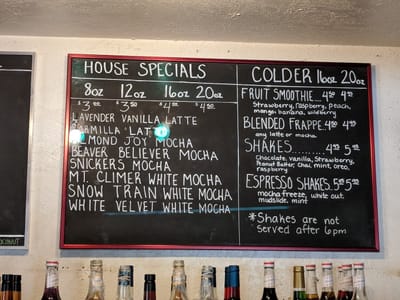 HOUSE SPECIALS
8oz 12oz 16oz 20oz
$3.00 $3.50 $4.00 $4.50
LAVENDER VANILLA LATTE
LATTE
ALMOND JOY MOCHA
BEAVER BELIEVER MOCHA
SNICKERS MOCHA
MT. CLIMER WHITE MOCHA
SNOW TRAIN WHITE MOCHA
WHITE VELVET WHITE MOCHA
COLDER 16oz 20oz
FRUIT SMOOTHIE...
Strawberry, raspberry, peach,
mango, banana, wildberry
BLENDED FRAPPE
any latte or mocha
SHAKES
Chocolate, vanilla, Strawberry,
Peanut Butter, Chai, mint, oreo,
raspberry
ESPRESSO SHAKES
mocha freeze, white out
mudslide, mint
*Shakes are not
Served after 6pm